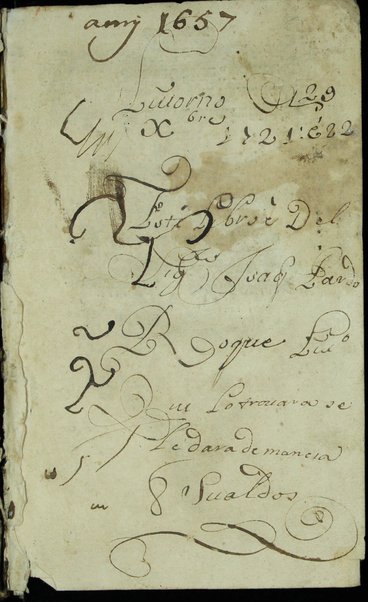 anij 1657
Livorno 29
X bre 1721: è 22
Questi Libro è Del
Sigre Isaq Pardo
Roque Livo
Qui Lo trovara se
Le dara de mancia
8 Sualdos